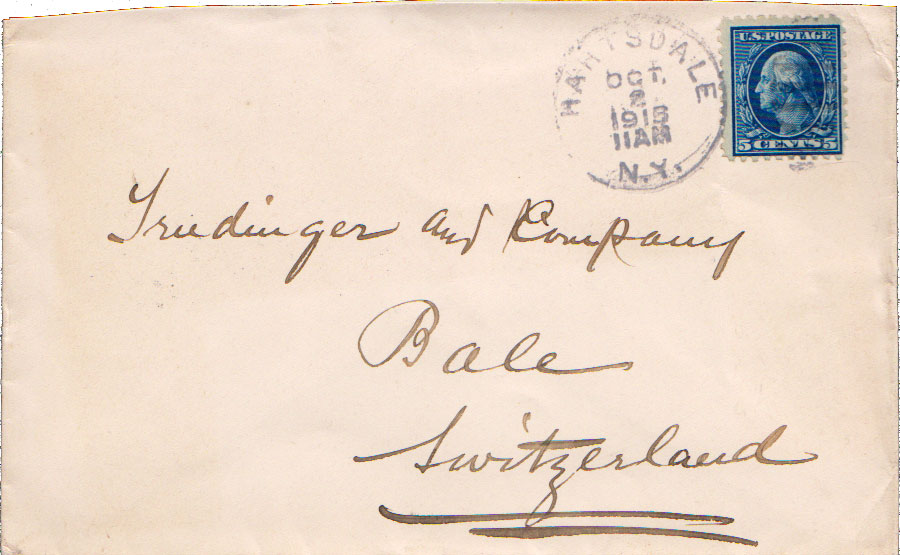 HARTSDALE
OCT.
2
1915
11AM
N.Y.
U.S. POSTAGE
5 CENTS 5
and Company
Bale
Switzerland